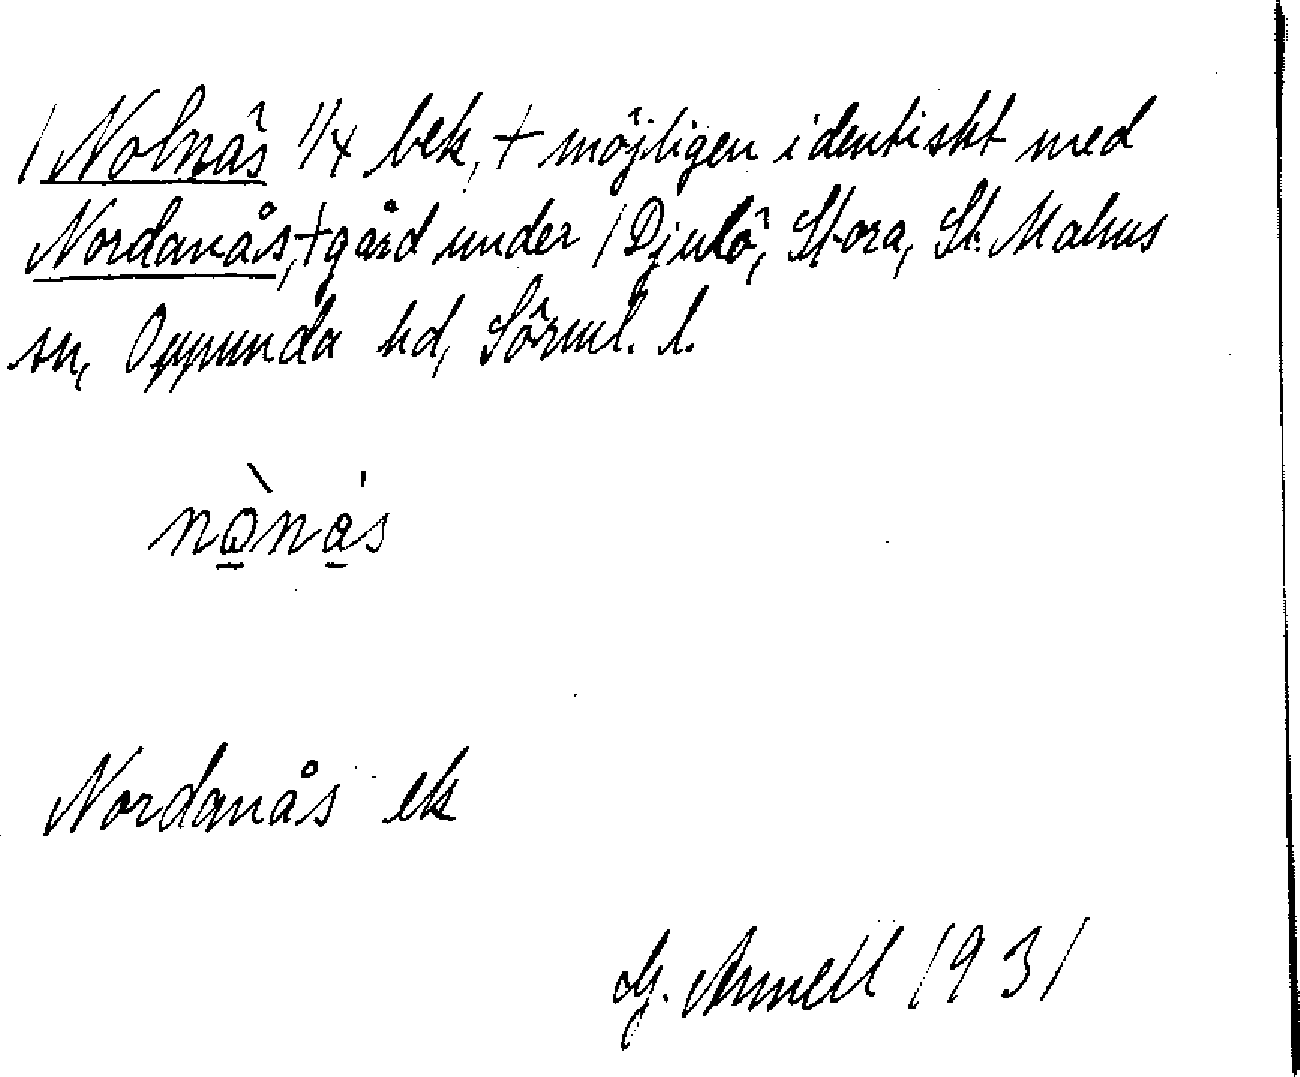 / Nolnås 1/4 bek, † möjligen identiskt med
Nordanås, † gård under / Djulö, Stora, St. Malms
sn, Oppunda hd, Sörml. l.
nò̱ná̱s
Nordanås ek
G. Annell 1931